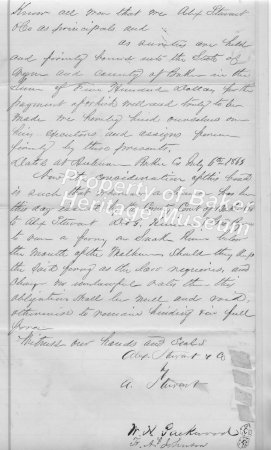 Know all men that we Alex Stewart
& Co as principals and
as sureties are held
and firmly bound unto the State of
Oregon and County of Baker in the
Sum of Five Hundred Dollars for the
payment of which well and truly to be
made we hereby bind ourselves our
heirs executors and assigns
firmly by these presents.
Dated at Auburn Baker Co July 6th 1863
Now the consideration of this bond
is such that whereas a license has
this day been by the County Court
to Alex Stewart
to run a ferry on Snake River below
the mouth of the Malheur should they keep
the said ferry as the law requires, and
charge no unlawful rates then this
obligation shall be null and void
otherwise to remain binding in full
force
Witness our hands and Seals
Alex Stewart & Co
by
A. Stewart
W. H. Packwood
F. A. Johnson
Property of Baker
Heritage Museum